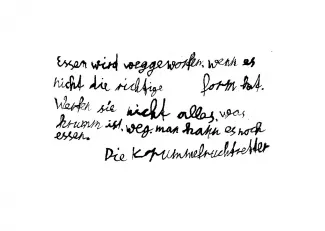 Essen wird weggeworfen, wenn es
nicht die richtige form hat.
Werfen sie nicht alles, was
krumm ist, weg. man kahn es noch
essen.
Die Krummefruchtretter